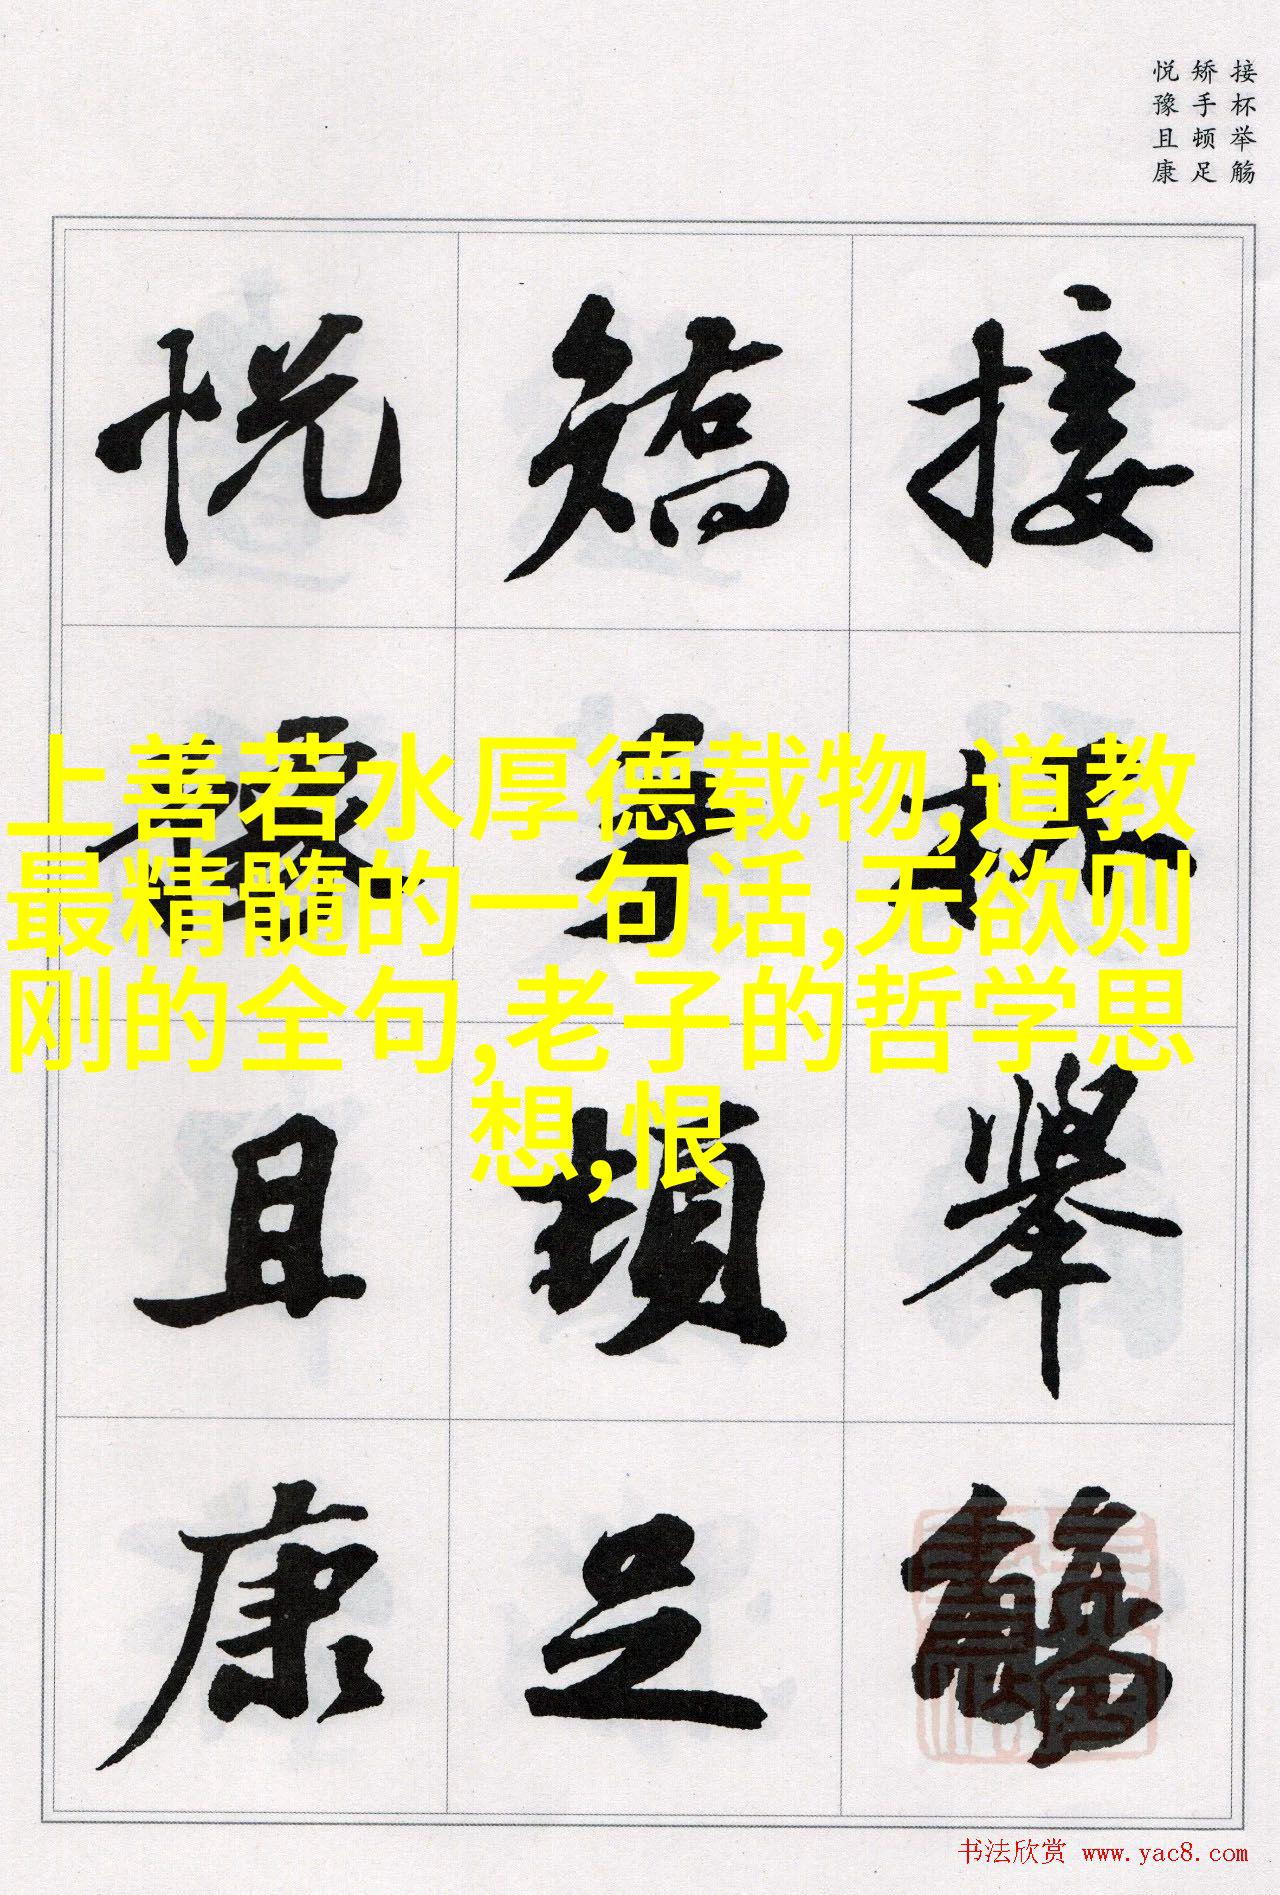 接杯举觞
矫手顿足
悦豫且康
接杯举觞
矫手顿足
悦豫且康
上善若水厚德载物,道教
最精髓的一句话,无欲则
刚的全句,老子的哲学思
想,恨
书法欣赏 www.yac8.com